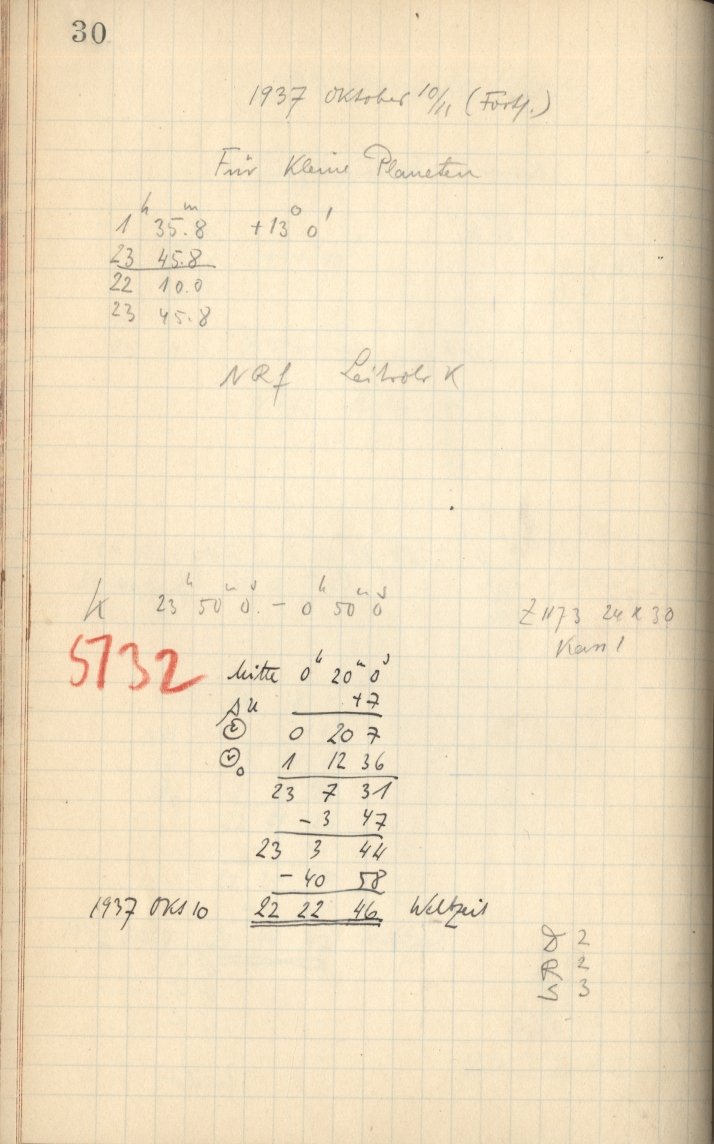 30
1937 Oktober 10/11 (Forts.)
Für Kleine Planeten
1ʰ 35ᵐ.8 +13° 0'
23 45.8
22 10.0
23 45.8
Leitrohr K
K 23ʰ 50ᵐ 0ˢ. - 0ʰ 50ᵐ 0ˢ
Z 1173 24 x 30
Kass 1
5732
Mitte 0ʰ 20ᵐ 0ˢ
Δu +7
0 20 7
1 12 36
23 7 31
- 3 47
23 3 44
- 40 58
1937 Okt 10 22 22 46 Weltzeit
D 2
R 2
3